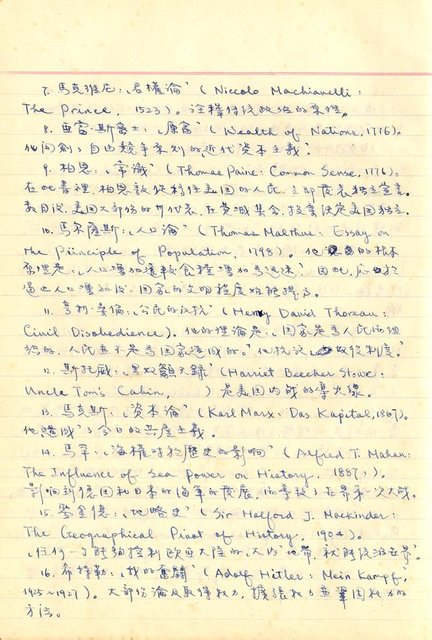 7. 馬克維尼:「君權論」(Niccolo Machiavelli:
The Prince, 1523)。詮釋傳統政治的業理。
8. 亞當·斯密士:「原富」(Wealth of Nations, 1776)。
他開創了自由競爭案例的近代資本主義。
9. 柏恩:「常識」(Thomas Paine: Common Sense, 1776)。
在此書裡,柏恩敦促利住美國的人民,立即發表獨立宣言。
數日後,美國大部份的州代表,在費城集會,投票決定美國獨立。
10. 馬尔薩斯:「人口論」(Thomas Malthus: Essay on
the Principle of Population, 1798)。他的根本
原理是:「人口增加遠較食糧增加為迅速」因此,必
遏止人口增加後,國家的文明程度始能提高。
11. 亨利·梭倫:「公民的反抗」(Henry David Thoreau:
Civil Disobedience)。他的理論是:「國家是為人民而組
織的,人民並不是為國家造成的。」他抗議奴役制度。
12. 斯托威:「黑奴籲天錄」(Harriet Beecher Stowe:
Uncle Tom's Cabin, )是美國內戰的導火線。
13. 馬克斯:「資本論」(Karl Marx: Das Kapital, 1867)。
他造成了今日的共產主義。
14. 馬罕:「海權對於歷史的影響」(Alfred T. Mahan:
The Influence of Sea Power on History, 1867:)。
影响到德國和日本的海軍的發展,而導致了世界第一次大战。
15. 麥金德:「地略史」(Sir Halford J. Mackinder:
The Geographical Pivot of History, 1904)。
「任何一了能夠控制欧亞大陸的「人内」地帶,就能統治世界。」
16. 希特勒:「我的奮鬪」(Adolf Hitler: Mein Kampf,
1925~1927)。大部份論及取得权力,擴張权力並鞏固权力的
方法。